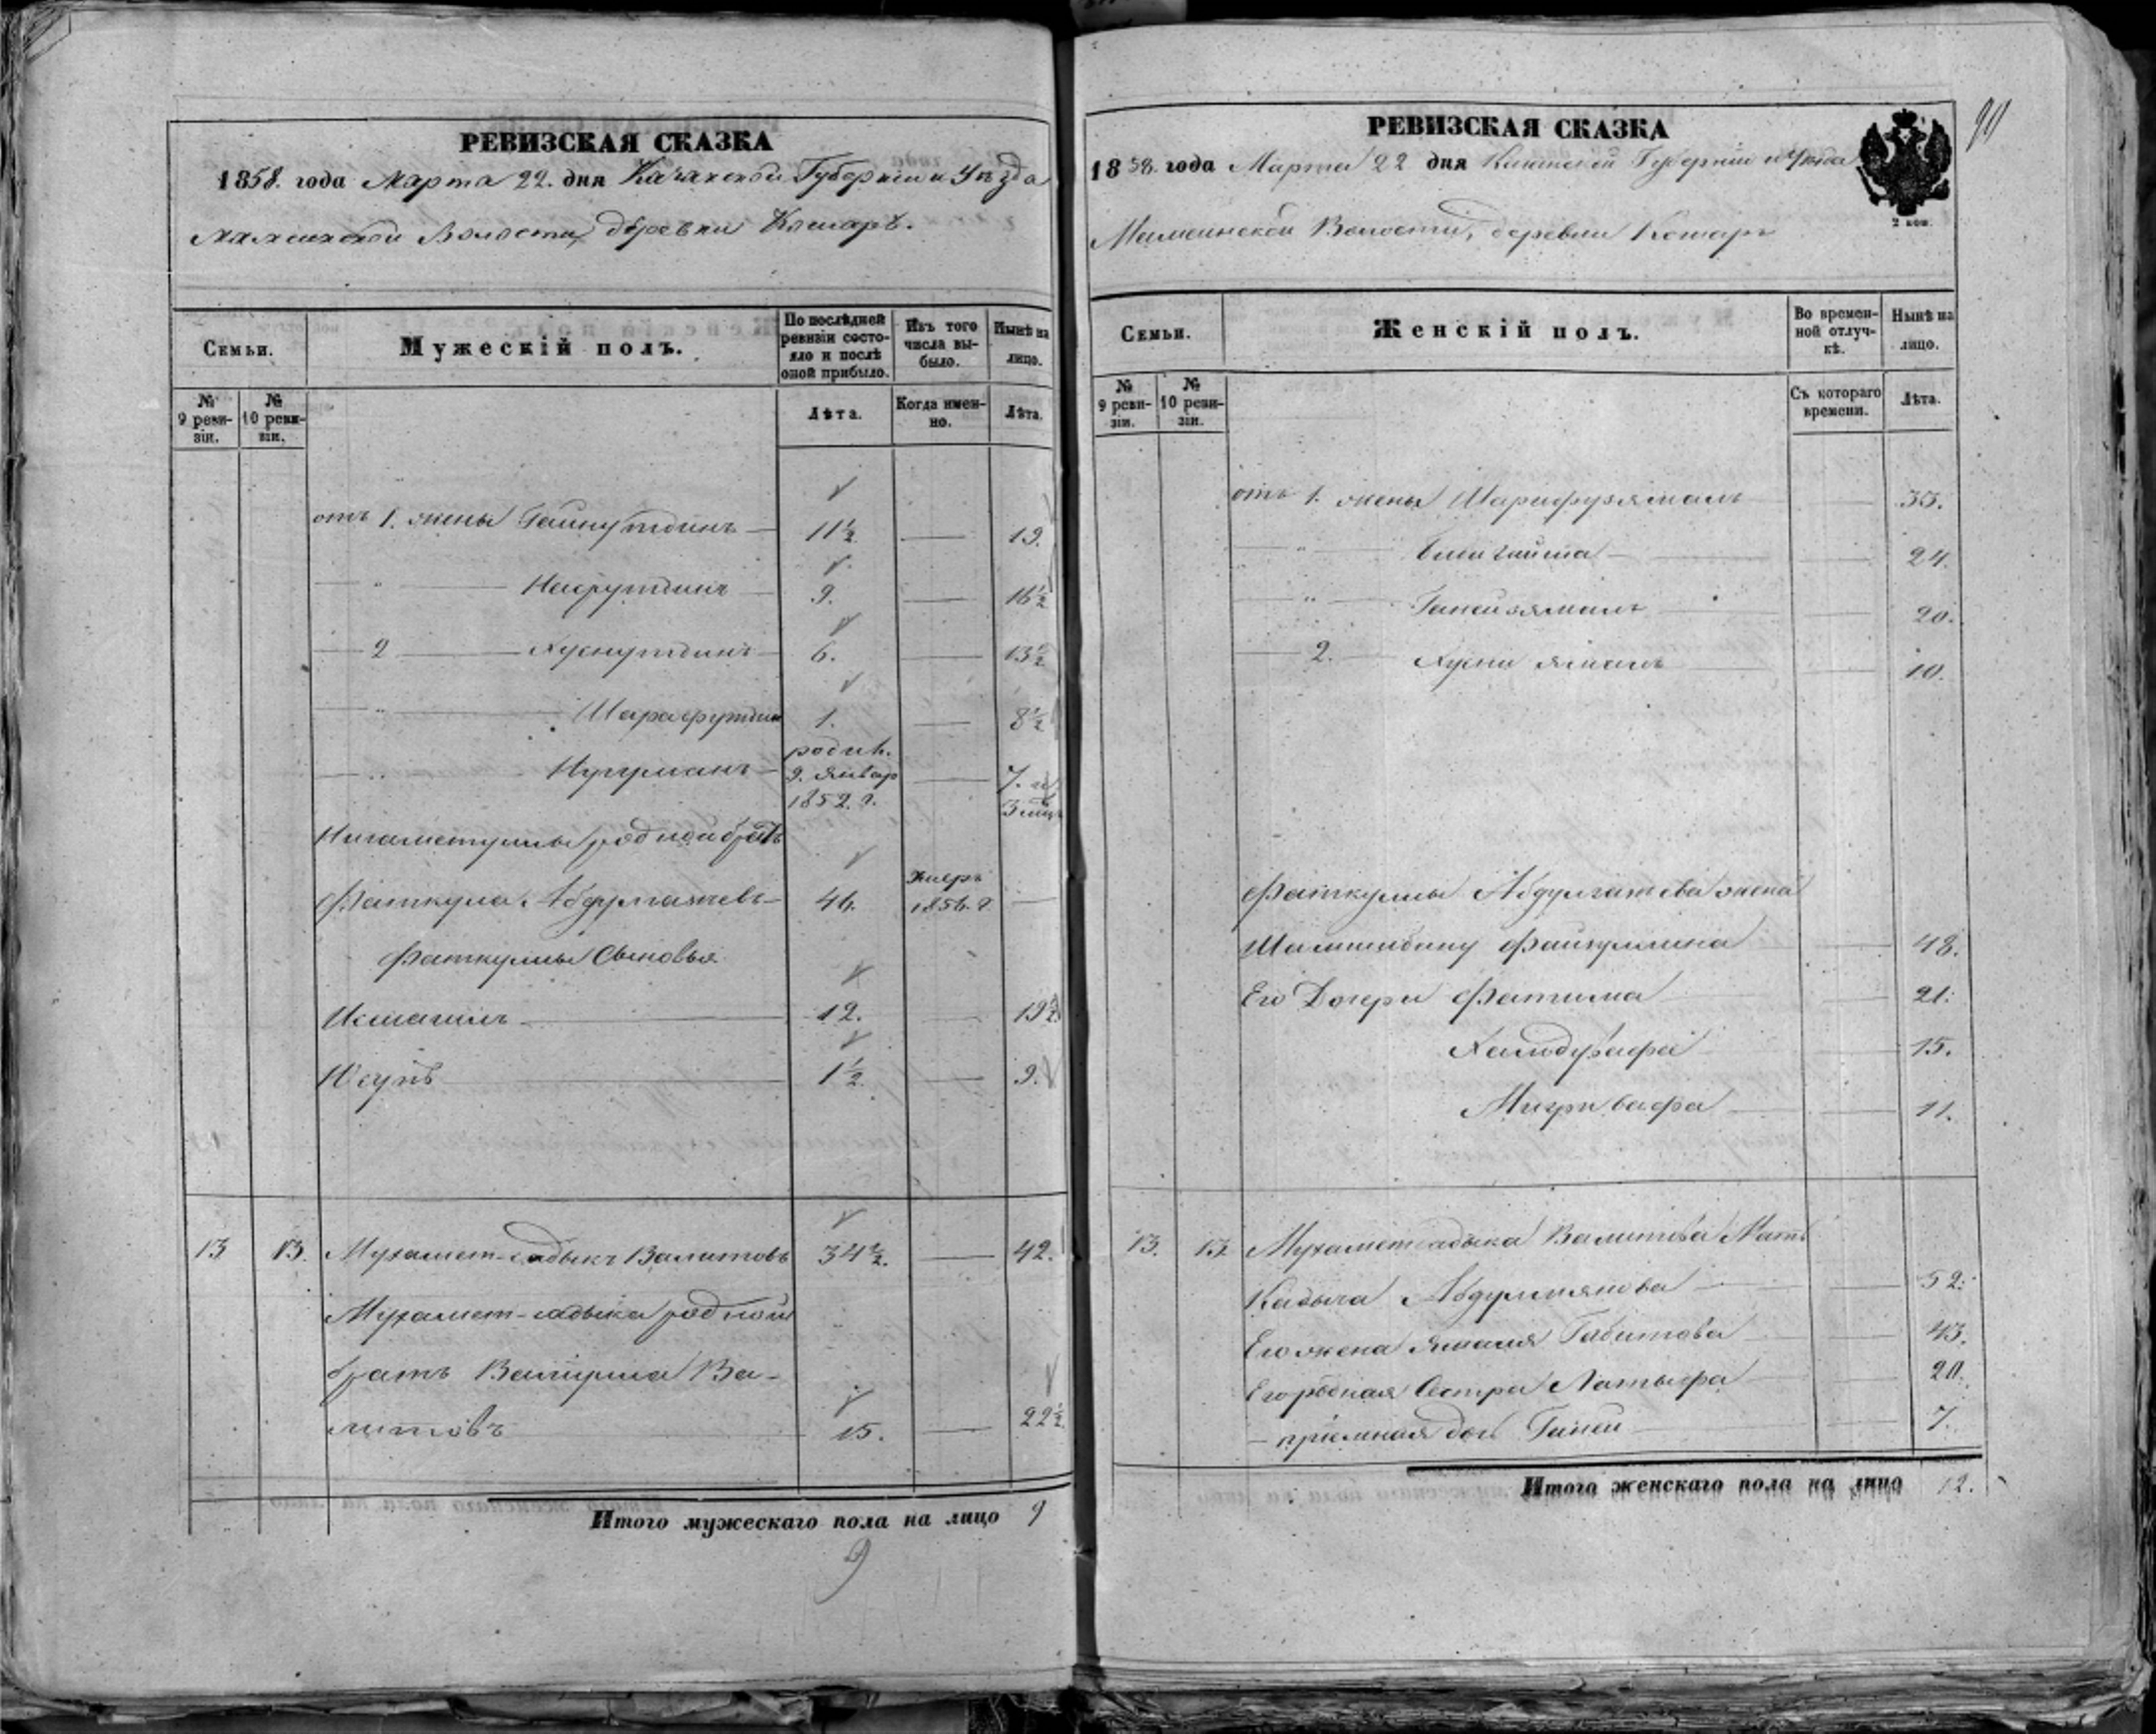 РЕВИЗСКАЯ СКАЗКА
1858. года Марта 22. дня Казанской Губерніи и Уѣзда
Мамсинской Волости, деревни Кошаръ.
Семьи.
Мужескій полъ.
По послѣдней ревизіи состояло и послѣ оной прибыло.
Изъ того числа выбыло.
Нынѣ на лицо.
№ 9 ревизіи.
№ 10 ревизіи.
Лѣта.
Когда именно.
Лѣта.
отъ 1. жены Гайнутдинъ 11½ — 19.
— " — Насрутдинъ 9. — 16½
— 2 — Хуснутдинъ 6. — 13½
— " — Шарафутдин 1. — 8½
— " — Нугуманъ родив. 9. Январ 1852. г. — 7. и 3 мѣс.
Нигаметуллы родной братъ
Фаткулла Абдулгатевъ 46. умеръ 1856. г. —
Фаткуллы Сыновья
Исмагилъ 12. 19½
Юсупъ 1½ — 9.
13 13. Мухамет-садыкъ Валитовъ 34½. — 42.
Мухамет-садыка родной
братъ Валиулла Ва-
литовъ 15. — 22½
Итого мужескаго пола на лицо 9
9
РЕВИЗСКАЯ СКАЗКА
1858. года Марта 22 дня Казанской Губерніи и Уѣзда
Мамсинской Волости, деревни Кошаръ
2 коп.
Семьи.
Женскій полъ.
Во временной отлучкѣ.
Нынѣ на лицо.
№ 9 ревизіи.
№ 10 ревизіи.
Съ котораго времени.
Лѣта.
отъ 1. жены Шарифузямалъ — 33.
— " — Биби — 24.
— " — Ганейзямалъ — 20.
— 2. — Хусни ямалъ — 10.
Фаткуллы Абдулгатева жена
Файзуллина — 48.
Его Дочери Фатима — 21.
— 15.
Мигри вафа — 11.
13. 13. Мухаметсадыка Валитова Мать
Абдулмянова — 52.
Его жена Ямаля Габитова — 43.
Его родная Сестра Латыфа 20.
— пріемная доч Ганеи — 7.
Итого женскаго пола на лицо 12.